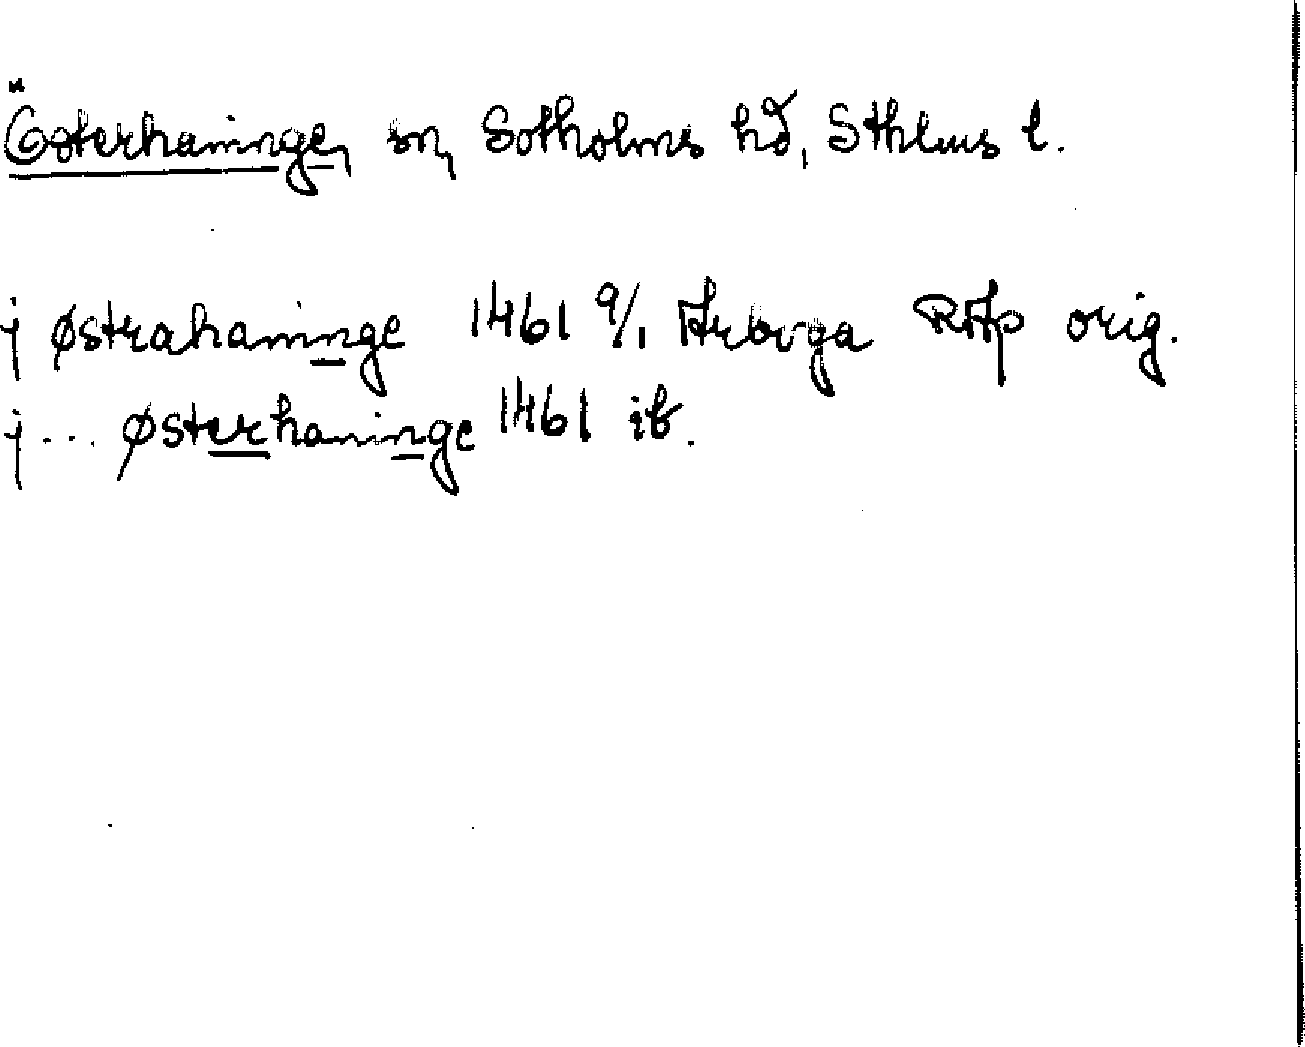 Österhaninge, sn, Sotholms hd, Sthlms l.
j østrahaninge 1461 9/1 Arboga RAp orig.
j ... østerhaninge 1461 ib.